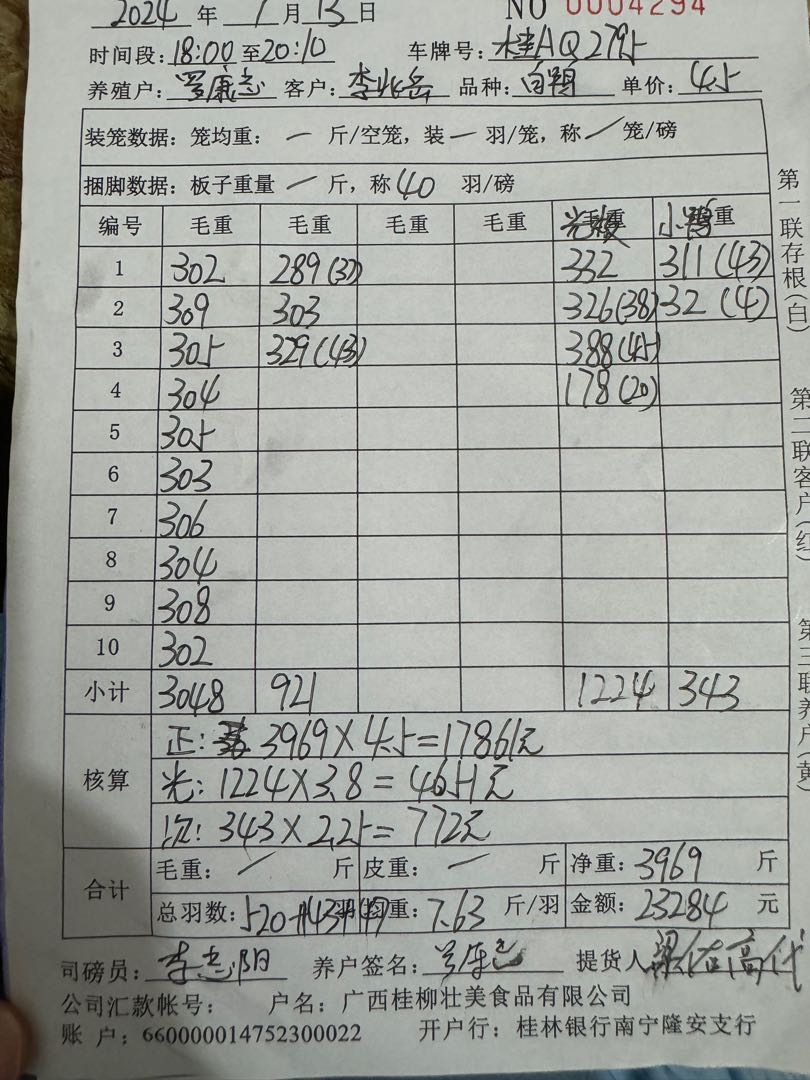 2024 年 1 月 13 日 NO 0004294
时间段: 18:00 至 20:10 车牌号: 桂AQ2795
养殖户: 罗康志 客户: 李兆岳 品种: 白鸭 单价: 4.5
装笼数据: 笼均重: 一 斤/空笼, 装 一 羽/笼, 称 / 笼/磅
捆脚数据: 板子重量 一 斤, 称 40 羽/磅
编号 毛重 毛重 毛重 毛重 毛重 小鸭 重
1 302 289(37) 332 311(43)
2 309 303 326(38) 32 (4)
3 305 329(43) 388(45)
4 304 178(20)
5 305
6 303
7 306
8 304
9 308
10 302
小计 3048 921 1224 343
核算
正: 3969×4.5=17861元
光: 1224×3.8=4651元
次: 343×2.25=772元
合计
毛重: / 斤 皮重: 一 斤 净重: 3969 斤
总羽数: 520+143+47 均重: 7.63 斤/羽 金额: 23284 元
司磅员: 李志阳 养户签名: 提货人
公司汇款帐号: 户名: 广西桂柳壮美食品有限公司
账 户: 660000014752300022 开户行: 桂林银行南宁隆安支行
第一联存根(白) 第二联客户(红) 第三联养户(黄)